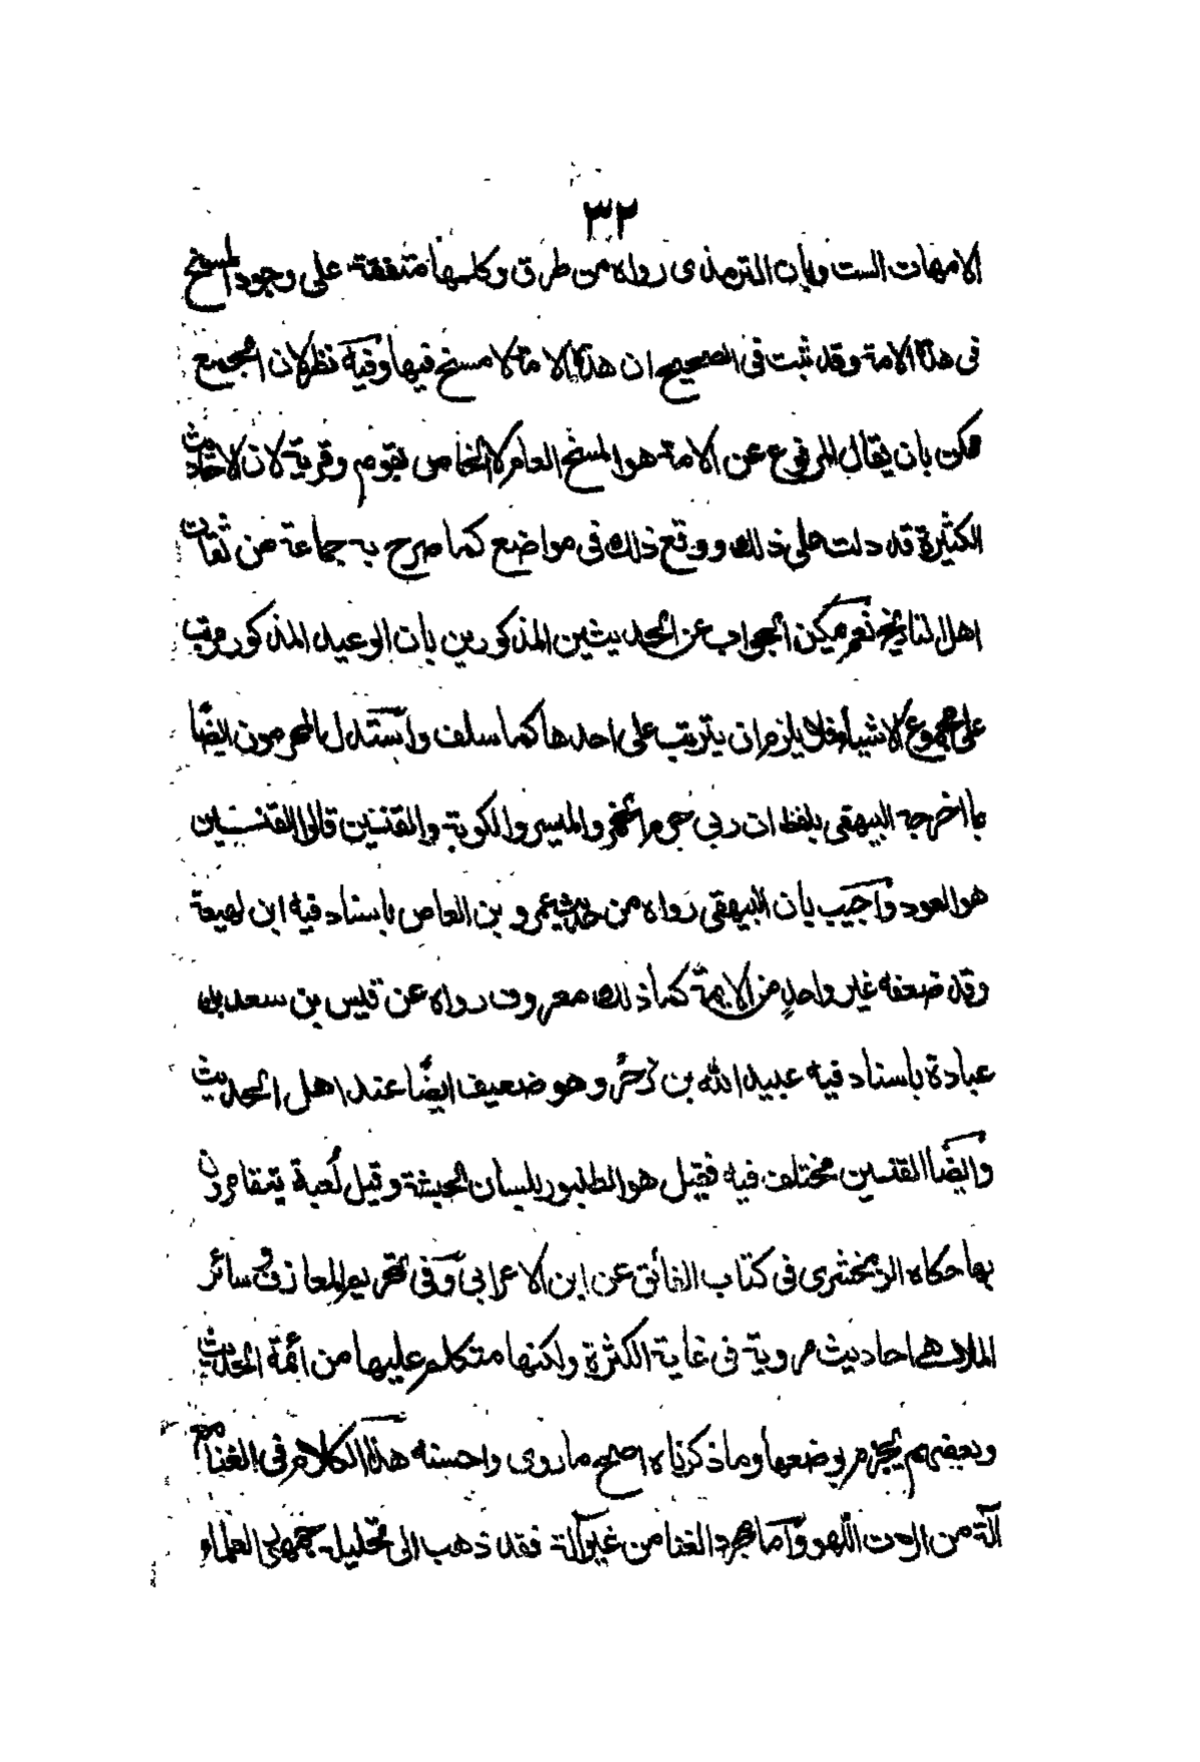 ٣٢
الامهات الست وبان الترمذى رواه من طرق وكلها متفقة على وجود المسخ
فى هذه الامة وقد ثبت فى الصحيح ان هذه الامة لا مسخ فيها وفيه نظر لان الجمع
ممكن بان يقال المرفوع عن الامة هو المسخ العام لا الخاص بقوم وقرية لان الاحاديث
الكثيرة قد دلت على ذلك ووقع ذلك فى مواضع كما صرح به جماعة من ثقات
اهل التاريخ نعم يمكن الجواب عن الحديثين المذكورين بان الوعيد المذكور مرتب
على مجموع الاشياء فلا يلزم ان يترتب على احدها كما سلف واستدل المحرمون ايضًا
بما اخرجه البيهقى بلفظ ان ربى حرم الخمر والميسر والكوبة والقنين قالوا القنين
هو العود واجيب بان البيهقى رواه من حديث عمرو بن العاص باسناد فيه ابن لهيعة
وقد ضعفه غير واحدٍ من الايمة كما ذلك معروف رواه عن قيس بن سعد بن
عبادة باسناد فيه عبيد الله بن زحر وهو ضعيف ايضًا عند اهل الحديث
وايضًا القنين مختلف فيه فقيل هو الطنبور بلسان الحبشة وقيل لُعبة يتقامرون
بها حكاه الزمخشرى فى كتاب الفائق عن ابن الاعرابى وفى تحريم المعازف وسائر
الملاهى احاديث مروية فى غاية الكثرة ولكنها متكلم عليها من ائمة الحديث
وبعضهم يجزم بوضعها وما ذكرناه اصح ما روى واحسنه هذا الكلام فى الغنا مع
آلة من الات اللهو واما مجرد الغنا من غير آلة فقد ذهب الى تحليله جمهور العلماء